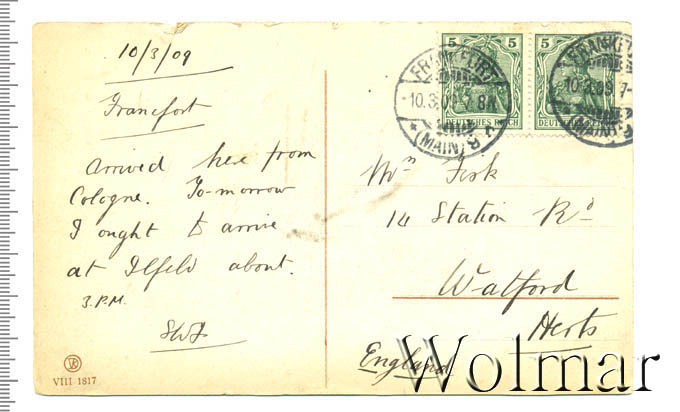 10/3/09
Francfort
Arrived here from
Cologne. To-morrow
I ought to arrive
at Ilfeld about.
3. P.M.
VIII 1817
5 5 5
FRANKFURT
10.3.09. 7-8N.
(MAIN)
DEUTSCHES REICH
FRANKFU
10.3.09. 7-
(MAIN)
Mrs Fisk
14 Station Rd
Watford
Herts
England
Wolmar